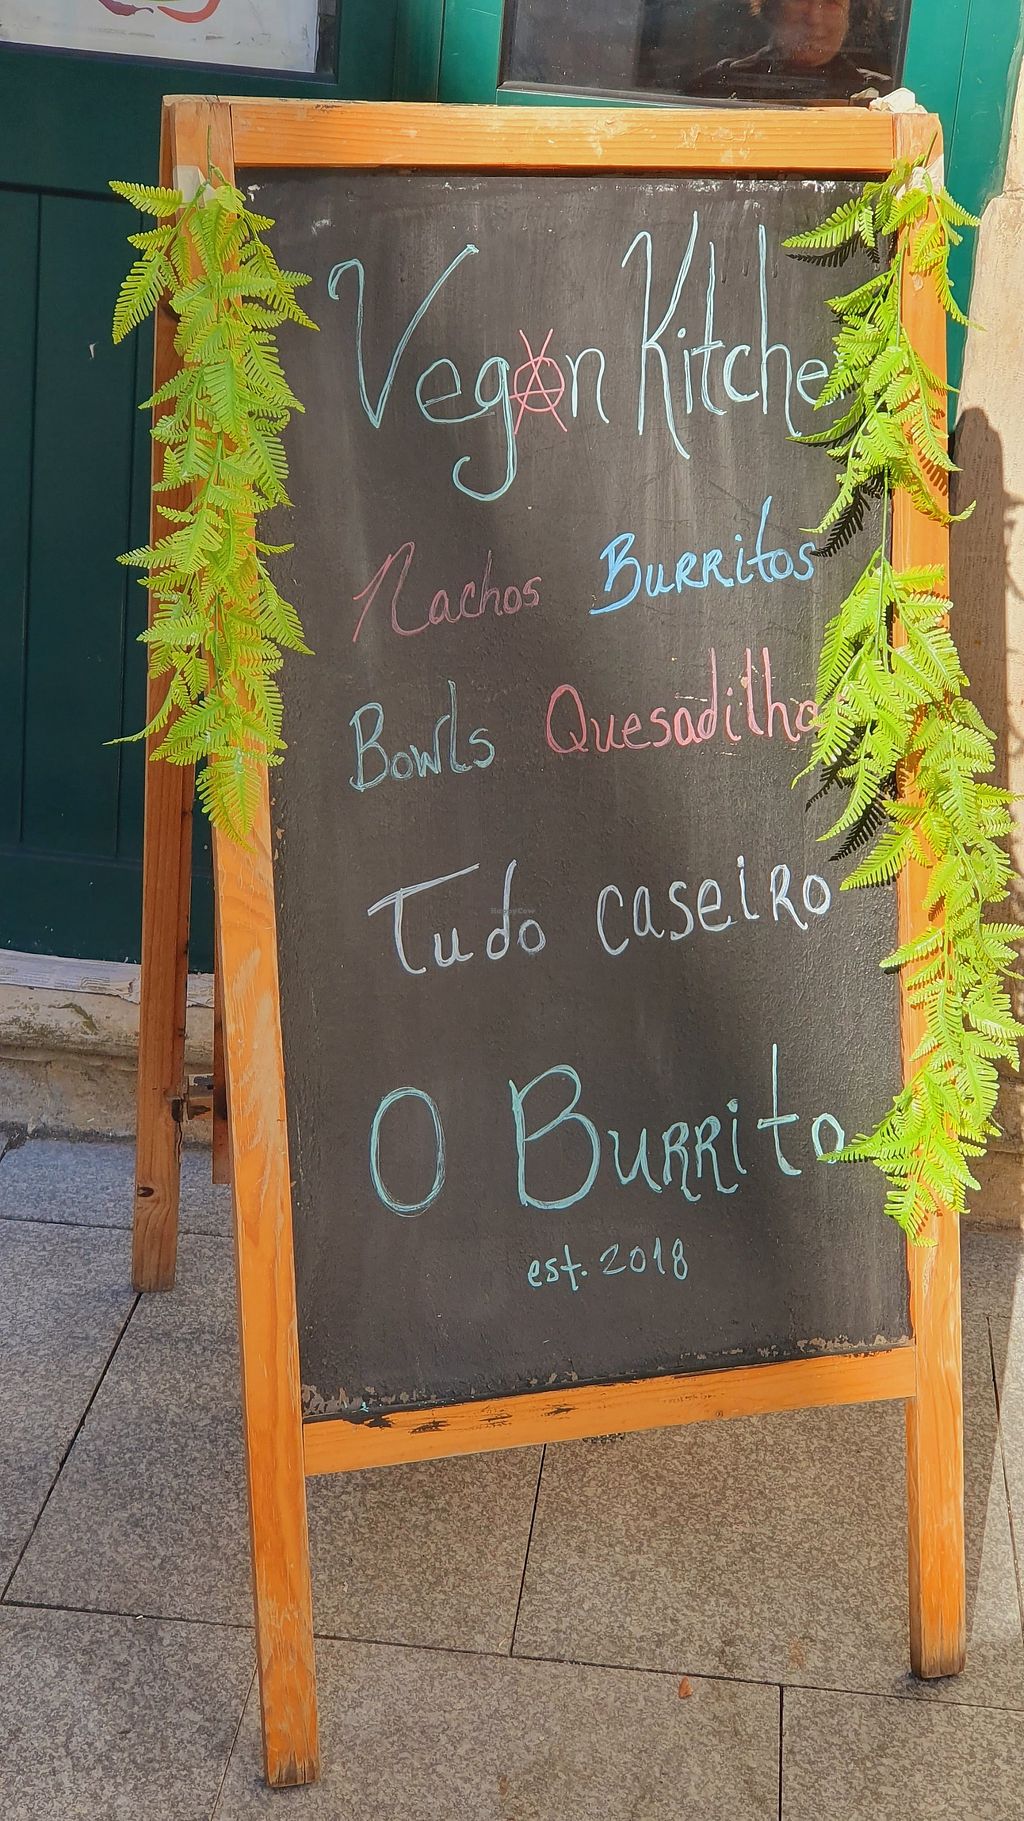 Vegan Kitche
Nachos Burritos
Bowls Quesadilha
Tudo caseiro
O Burrito
est. 2018